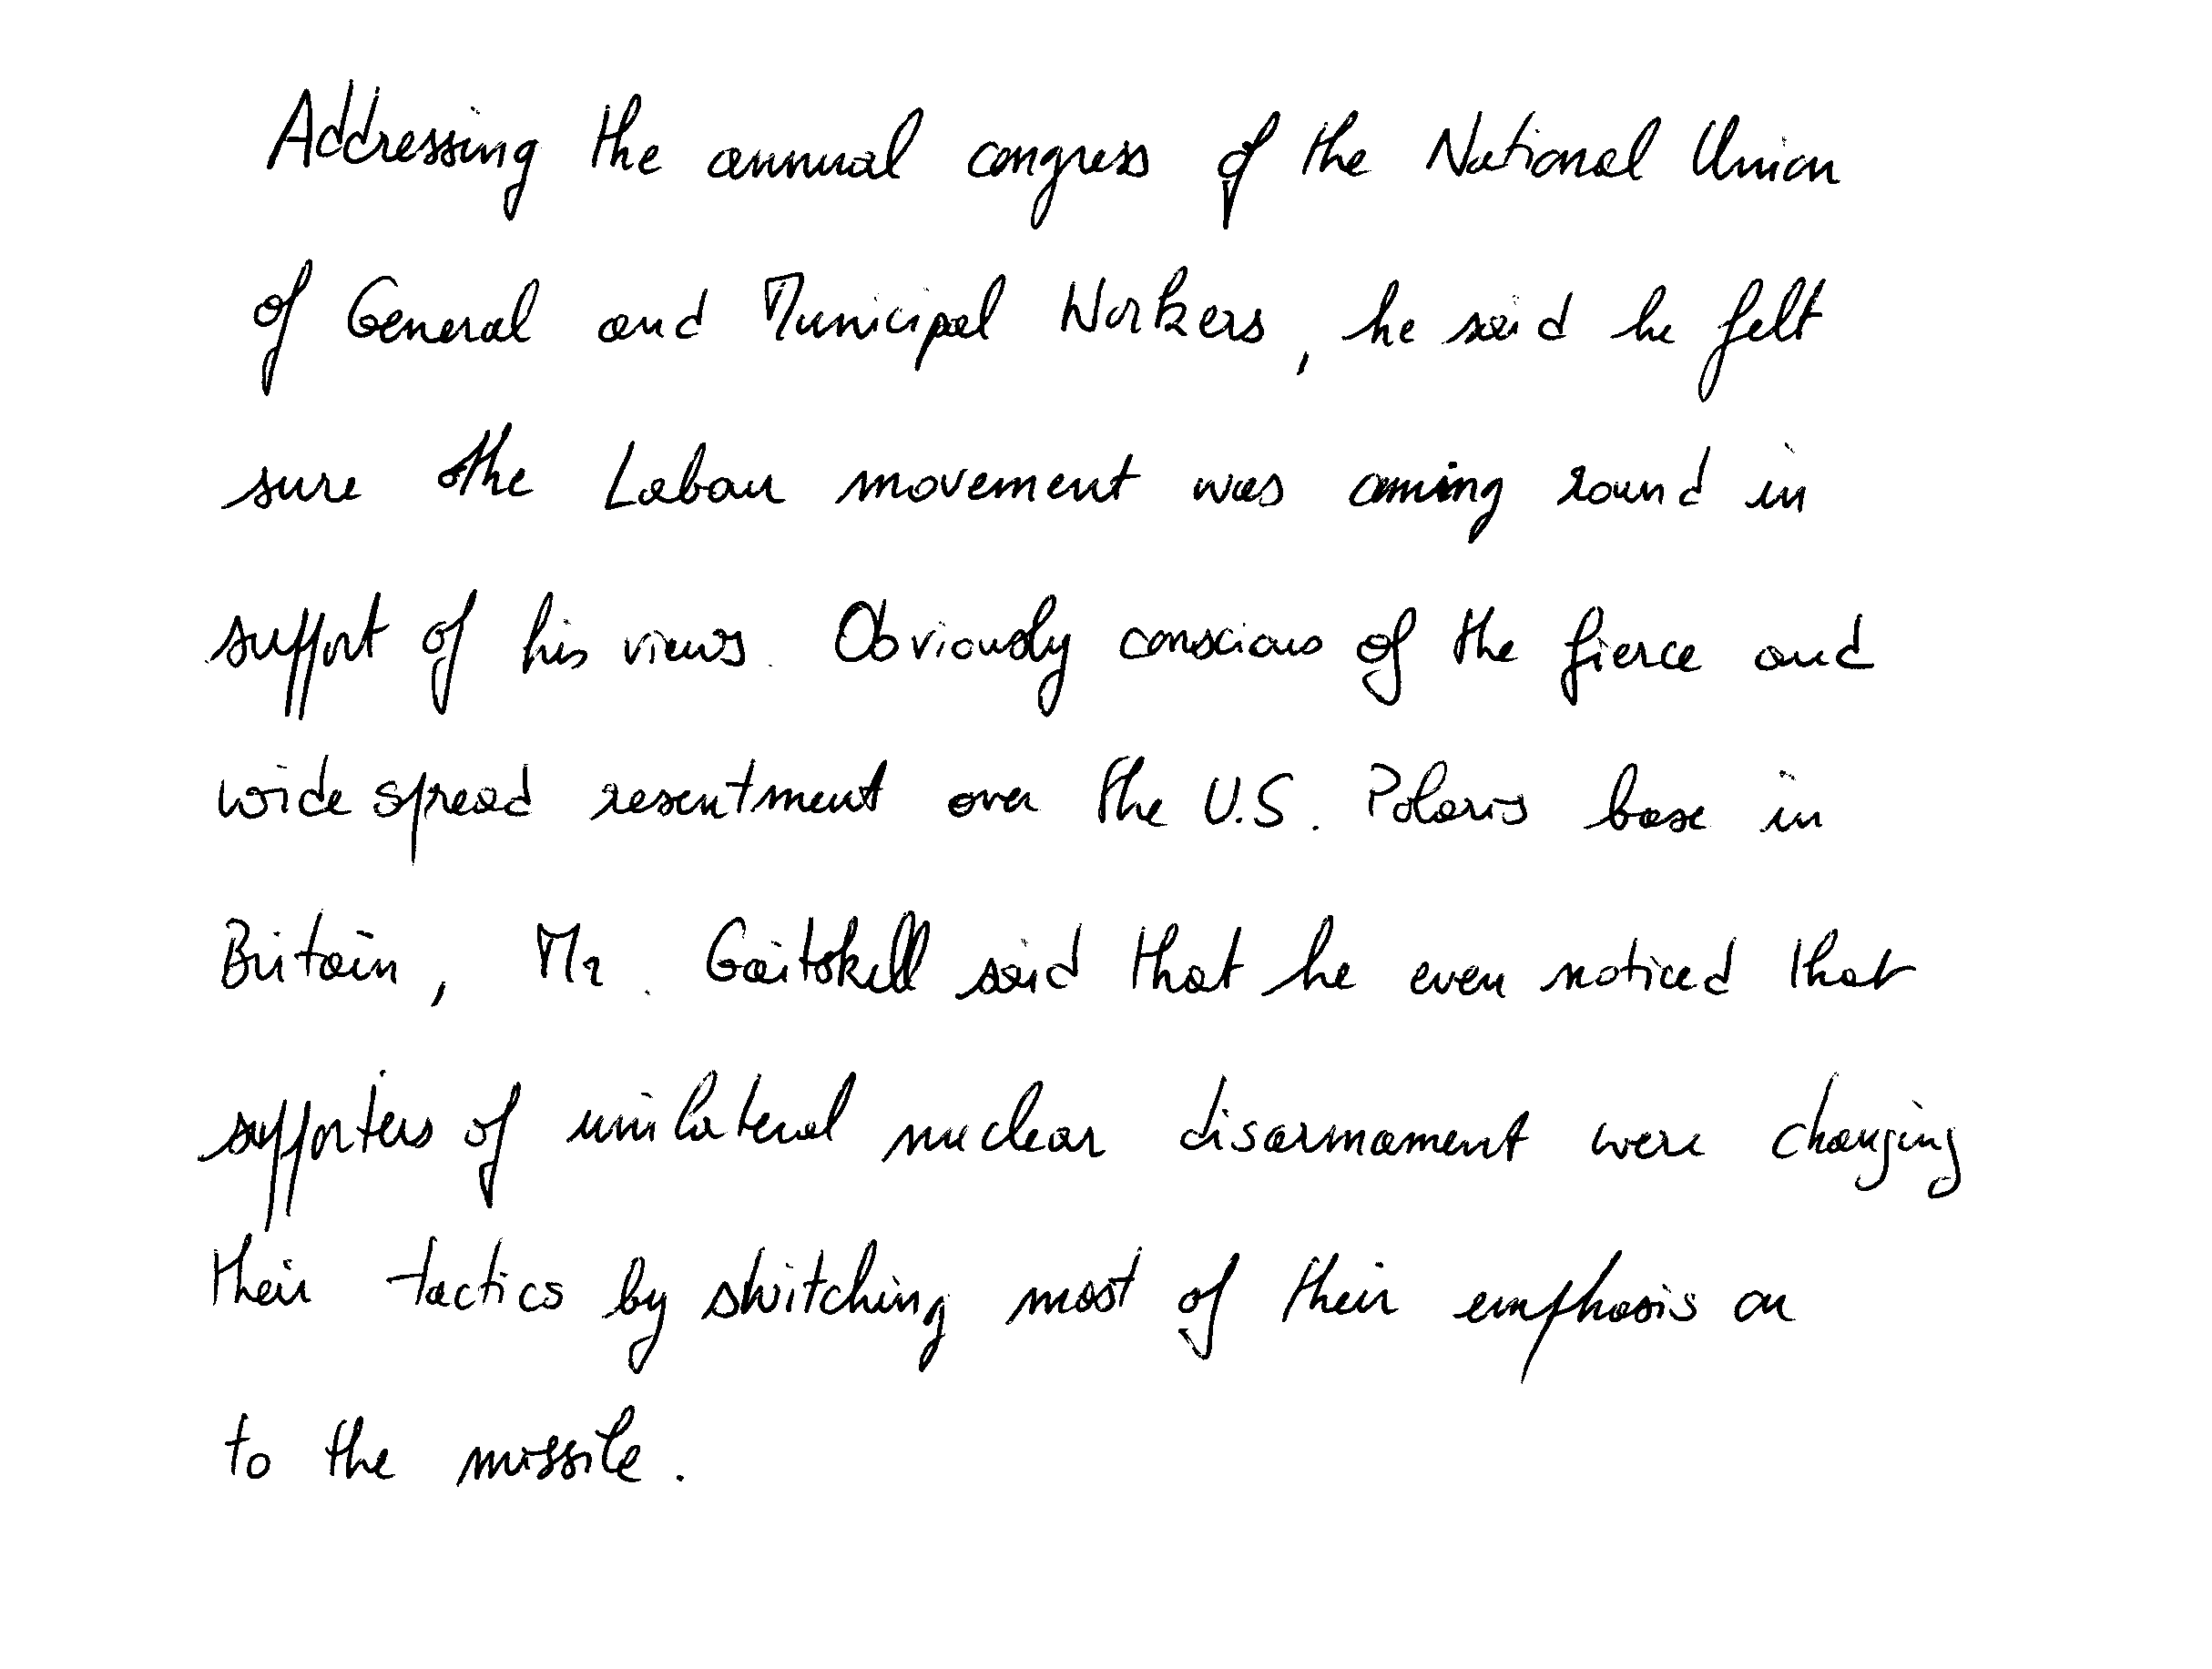 Addressing the annual congress of the National Union
of General and Municipal Workers, he said he felt
sure the Labour movement was coming round in
support of his views. Obviously conscious of the fierce and
widespread resentment over the U.S. Polaris base in
Britain, Mr. Gaitskell said that he even noticed that
supporters of unilateral nuclear disarmament were changing
their tactics by switching most of their emphasis on
to the missile.